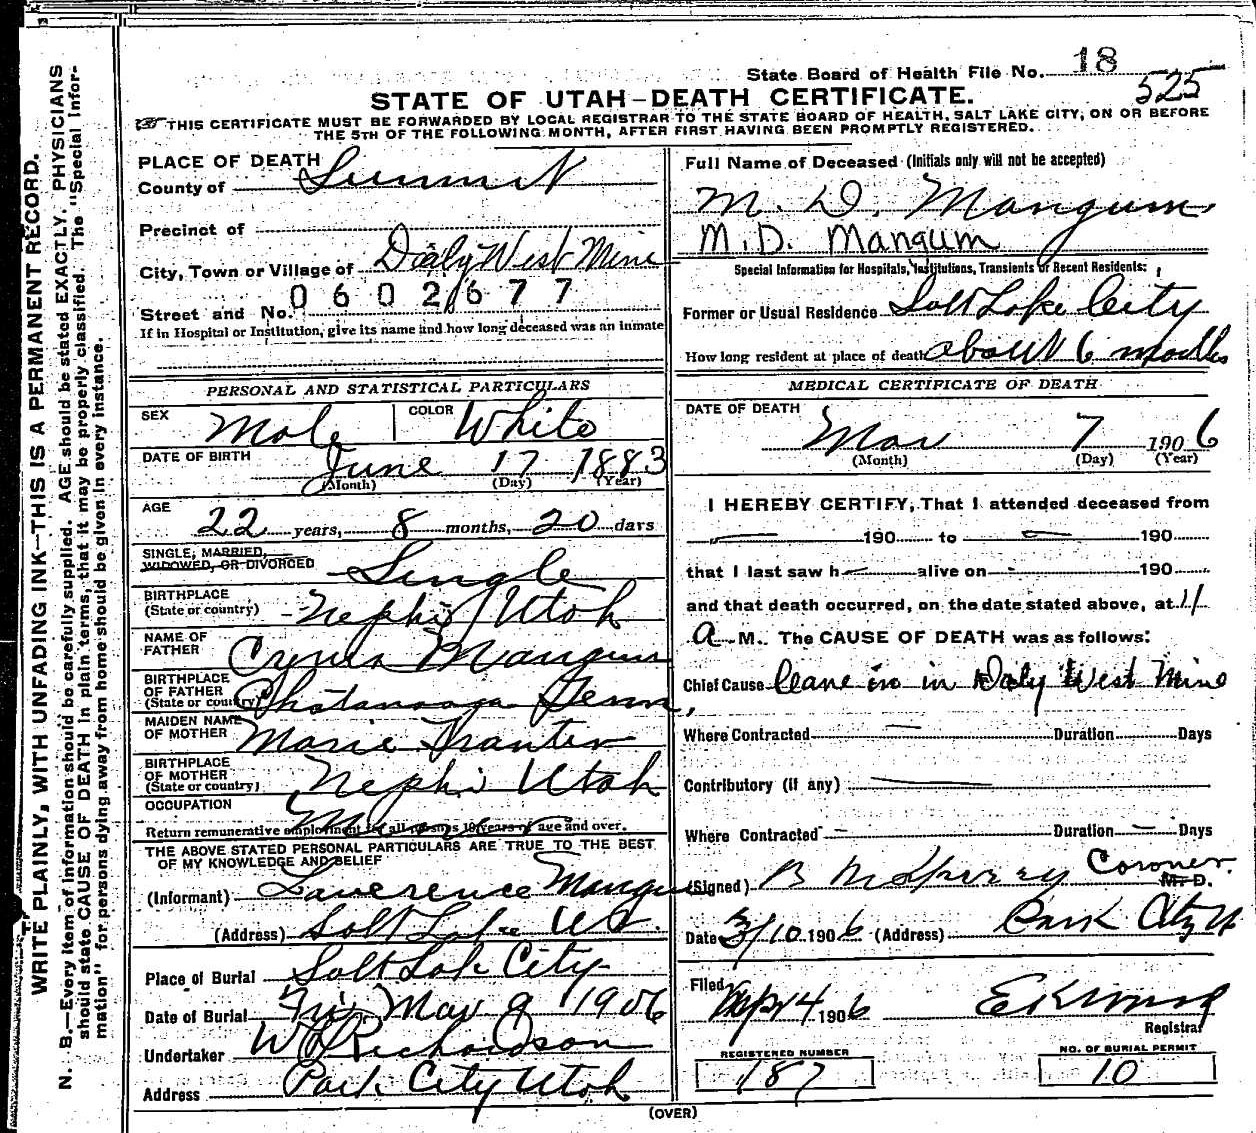 State Board of Health File No. 18
525
STATE OF UTAH—DEATH CERTIFICATE.
THIS CERTIFICATE MUST BE FORWARDED BY LOCAL REGISTRAR TO THE STATE BOARD OF HEALTH, SALT LAKE CITY, ON OR BEFORE
THE 5TH OF THE FOLLOWING MONTH, AFTER FIRST HAVING BEEN PROMPTLY REGISTERED.
PLACE OF DEATH
County of Summit
Precinct of
City, Town or Village of Daly West Mine
0602677
Street and No.
If in Hospital or Institution, give its name and how long deceased was an inmate
PERSONAL AND STATISTICAL PARTICULARS
SEX Male COLOR White
DATE OF BIRTH June 17 1883
(Month) (Day) (Year)
AGE 22 years, 8 months, 20 days
SINGLE, MARRIED,
WIDOWED, OR DIVORCED Single
BIRTHPLACE
(State or country) Nephi Utah
NAME OF
FATHER Cyrus Mangum
BIRTHPLACE
OF FATHER
(State or country) Chatanooga Tenn,
MAIDEN NAME
OF MOTHER Marie Tranter
BIRTHPLACE
OF MOTHER
(State or country) Nephi Utah
OCCUPATION Miner
Return remunerative employment for all persons 10 years of age and over.
THE ABOVE STATED PERSONAL PARTICULARS ARE TRUE TO THE BEST
OF MY KNOWLEDGE AND BELIEF
(Informant) Lawerence Mangum
(Address) Salt Lake Ut.
Place of Burial Salt Lake City
Date of Burial Fri. Mar 9 1906
Undertaker W Richardson
Address Park City Utah
Full Name of Deceased (Initials only will not be accepted)
M. D. Mangum
M.D. Mangum
Special Information for Hospitals, Institutions, Transients or Recent Residents:
Former or Usual Residence Salt Lake City
How long resident at place of death about 6 months
MEDICAL CERTIFICATE OF DEATH
DATE OF DEATH
Mar 7 1906
(Month) (Day) (Year)
I HEREBY CERTIFY, That I attended deceased from
190 to 190
that I last saw h alive on 190
and that death occurred, on the date stated above, at 11
a M. The CAUSE OF DEATH was as follows:
Chief Cause Cave in in Daly West Mine
Where Contracted Duration Days
Contributory (if any)
Where Contracted Duration Days
(Signed) Coroner
M. D.
Date 3/10 1906 (Address) Park City Ut
Filed 14 1906
Registrar
REGISTERED NUMBER
187
NO. OF BURIAL PERMIT
10
(OVER)
WRITE PLAINLY, WITH UNFADING INK—THIS IS A PERMANENT RECORD.
N. B.—Every item of information should be carefully supplied. AGE should be stated EXACTLY. PHYSICIANS
should state CAUSE OF DEATH in plain terms, that it may be properly classified. The "Special Infor-
mation" for persons dying away from home should be given in every instance.